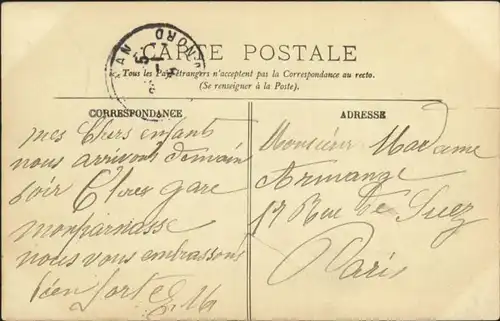 CARTE POSTALE
Tous les Pays étrangers n'acceptent pas la Correspondance au recto.
(Se renseigner à la Poste).
NORD
CORRESPONDANCE
mes Chers enfant
nous arrivont demain
soir
gare
monparnasse
nous vous embrassons
bien forte
ADRESSE
Monsieur Madame
Armange
17 Rue de Suez
Paris